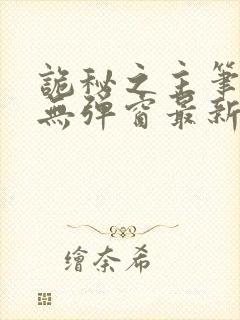 詭秘之主筆
無彈窗最新
繪奈希